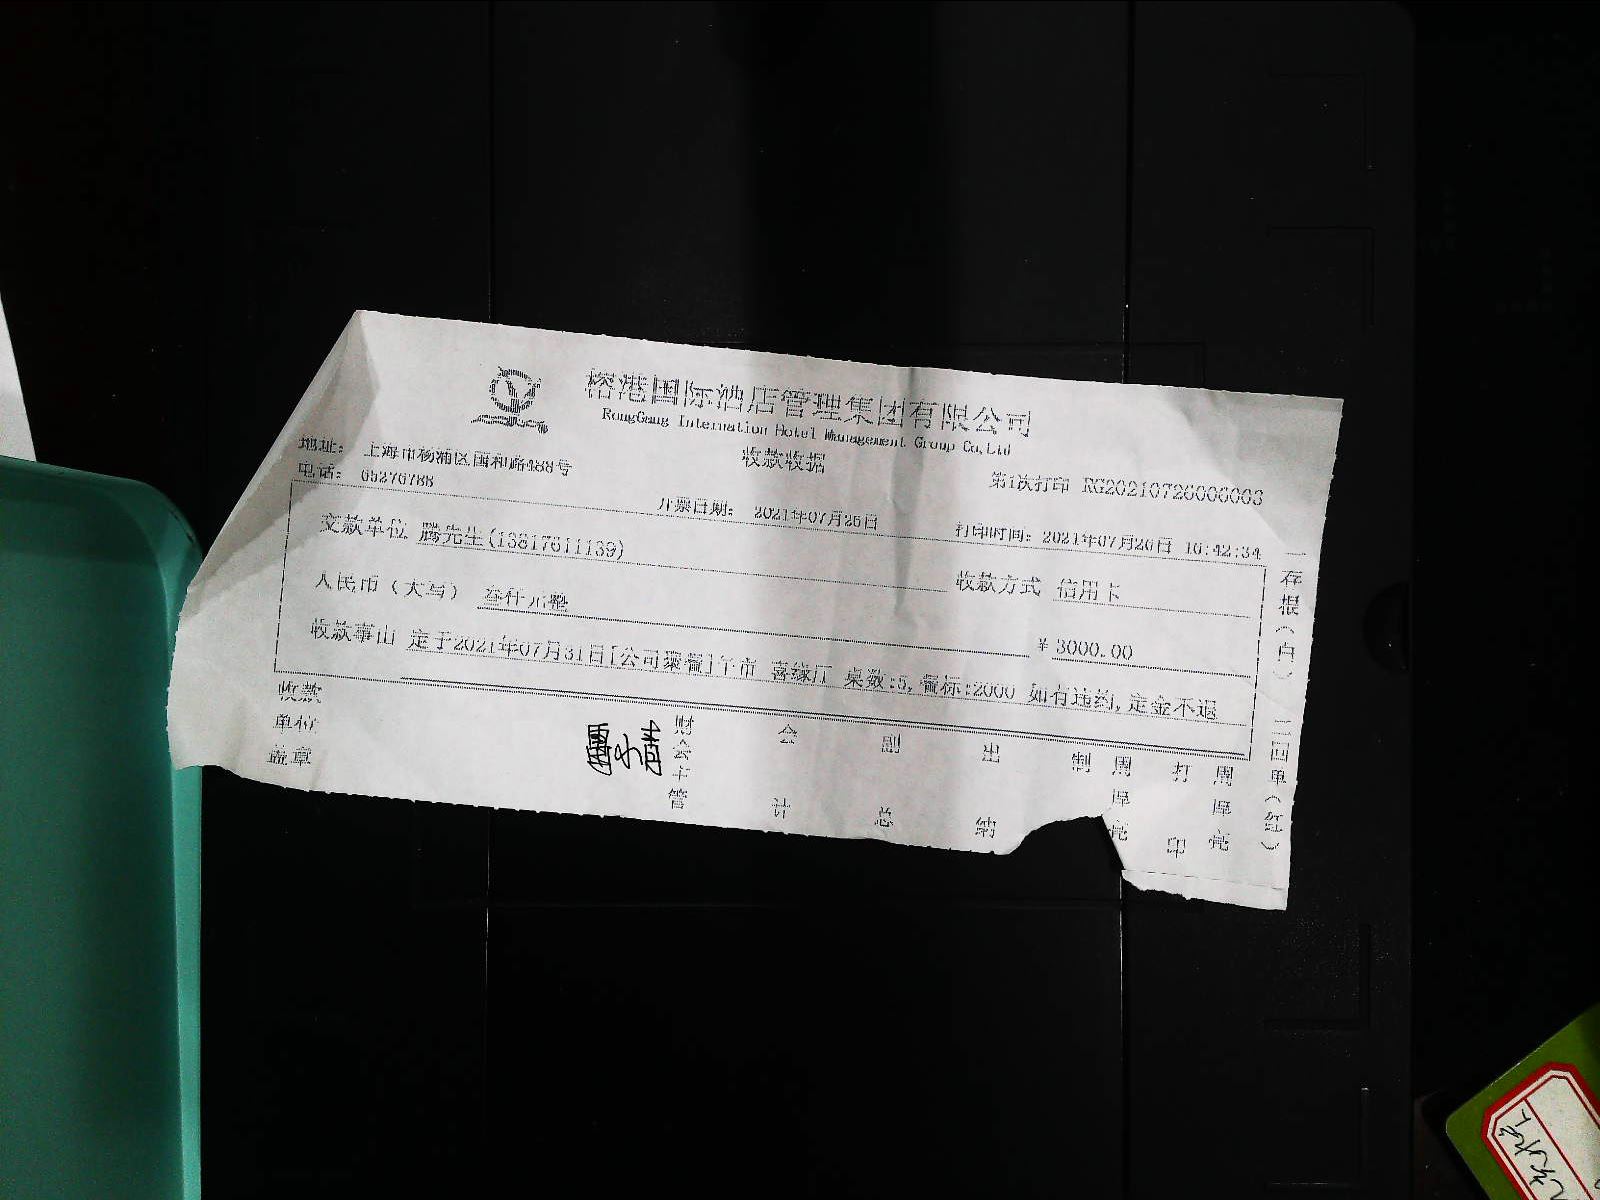 榕港国际酒店管理集团有限公司
RongGang Internation Hotel Management Group Co,Ltd
收款收据
地址： 上海市杨浦区国和路488号
电话： 65276788
第1次打印 RG20210726000003
开票日期： 2021年07月26日
打印时间： 2021年07月26日 16:42:34
交款单位 腾先生(13817611139)
收款方式 信用卡
人民币（大写） 叁仟元整
¥ 3000.00
收款事由 定于2021年07月31日[公司聚餐]午市 喜缘厅 桌数:5, 餐标:2000 如有违约, 定金不退
收款单位盖章
财会主管
会计
副总
出纳
制 周厚亮
打印 周厚亮
一存根（白） 二回单（红）